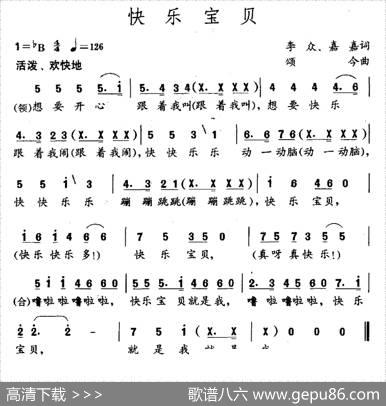 快乐宝贝
1=♭B 4/4 ♩=126
李众、嘉嘉词
活泼、欢快地
颂今曲
5 5 5 5. i | 5. 4 3 4 (X. X X X) | 4 4 4 4. 6 |
(领)想要开心 跟着我叫(跟着我叫)，想要快乐
4. 3 2 3 (X. X X X) | 5 5 3 1 | 6. 6 7 6 (X. X X X) |
跟着我闹(跟着我闹)，快快乐乐 动一动脑(动一动脑)，
5 5 i 3 | 4. 3 2 1 (X. X X X) | 1 6 4 6 0 |
快快乐乐 蹦蹦跳跳(蹦蹦跳跳)，快乐宝贝，
i 6 i 6 | 1 7 5 0 | 7 5 7 3 5 5 |
(快乐快乐多！) 快乐宝贝， (真呀真快乐！)
(合)噜啦啦噜啦啦， 快乐宝贝就是我， 噜啦啦噜啦啦， 快乐
宝贝， 就是我
高清下载 >>>
歌谱八六 www.gepu86.com